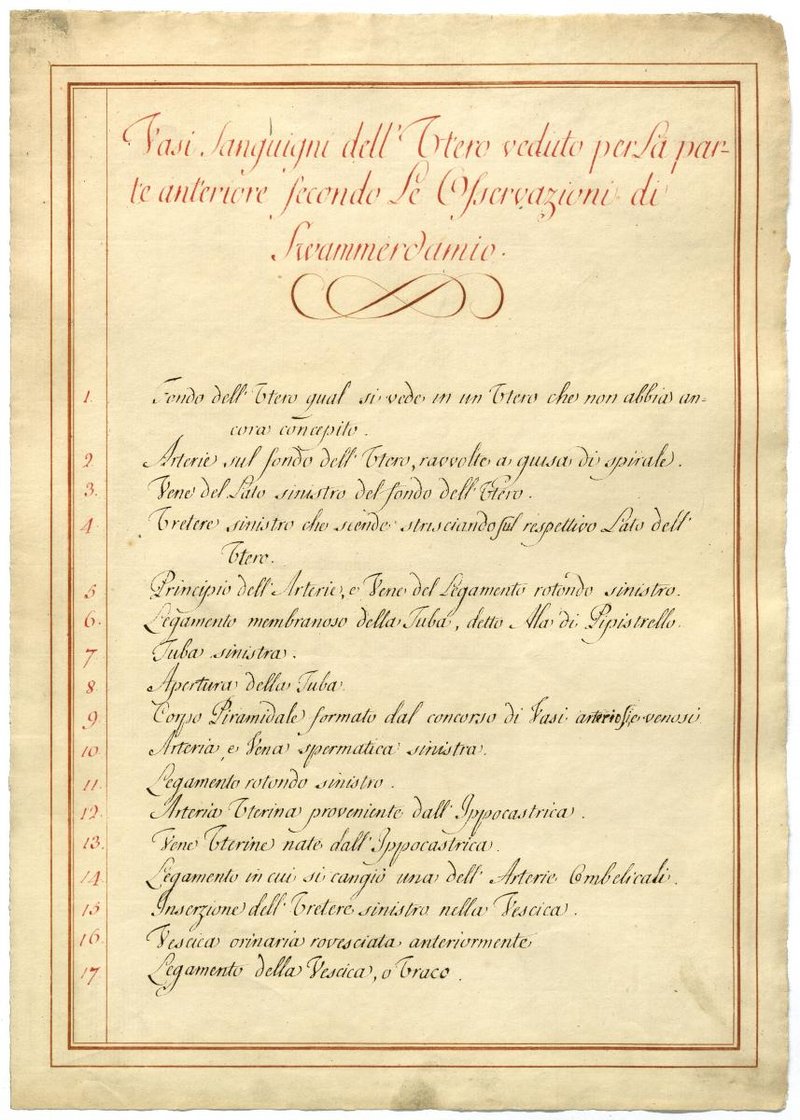 Vasi Sanguigni dell' Utero veduto per la par-
te anteriore secondo le Osservazioni di
Swammerdamio.
1. Fondo dell' Utero qual si vede in un Utero che non abbia an=
cora concepito.
2 Arterie sul fondo dell' Utero, ravvolte a guisa di spirale.
3. Vene del Lato sinistro del fondo dell' Utero.
4 Uretere sinistro che scende strisciando sul respettivo Lato dell'
Utero.
5 Principio dell' Arterie, e Vene del Legamento rotondo sinistro.
6. Legamento membranoso della Tuba, detto Ala di Pipistrello.
7 Tuba sinistra.
8 Apertura della Tuba
9. Corpo Piramidale formato dal concorso di Vasi arteriosi, e venosi
10. Arteria, e Vena spermatica sinistra.
11. Legamento rotondo sinistro.
12. Arteria Uterina proveniente dall' Ippocastrica.
13. Vene Uterine nate dall' Ippocastrica.
14. Legamento in cui si cangiò una dell' Arterie Ombelicali.
15 Inserzione dell' Uretere sinistro nella Vescica.
16. Vescica orinaria rovesciata anteriormente
17 Legamento della Vescica, o Uraco.